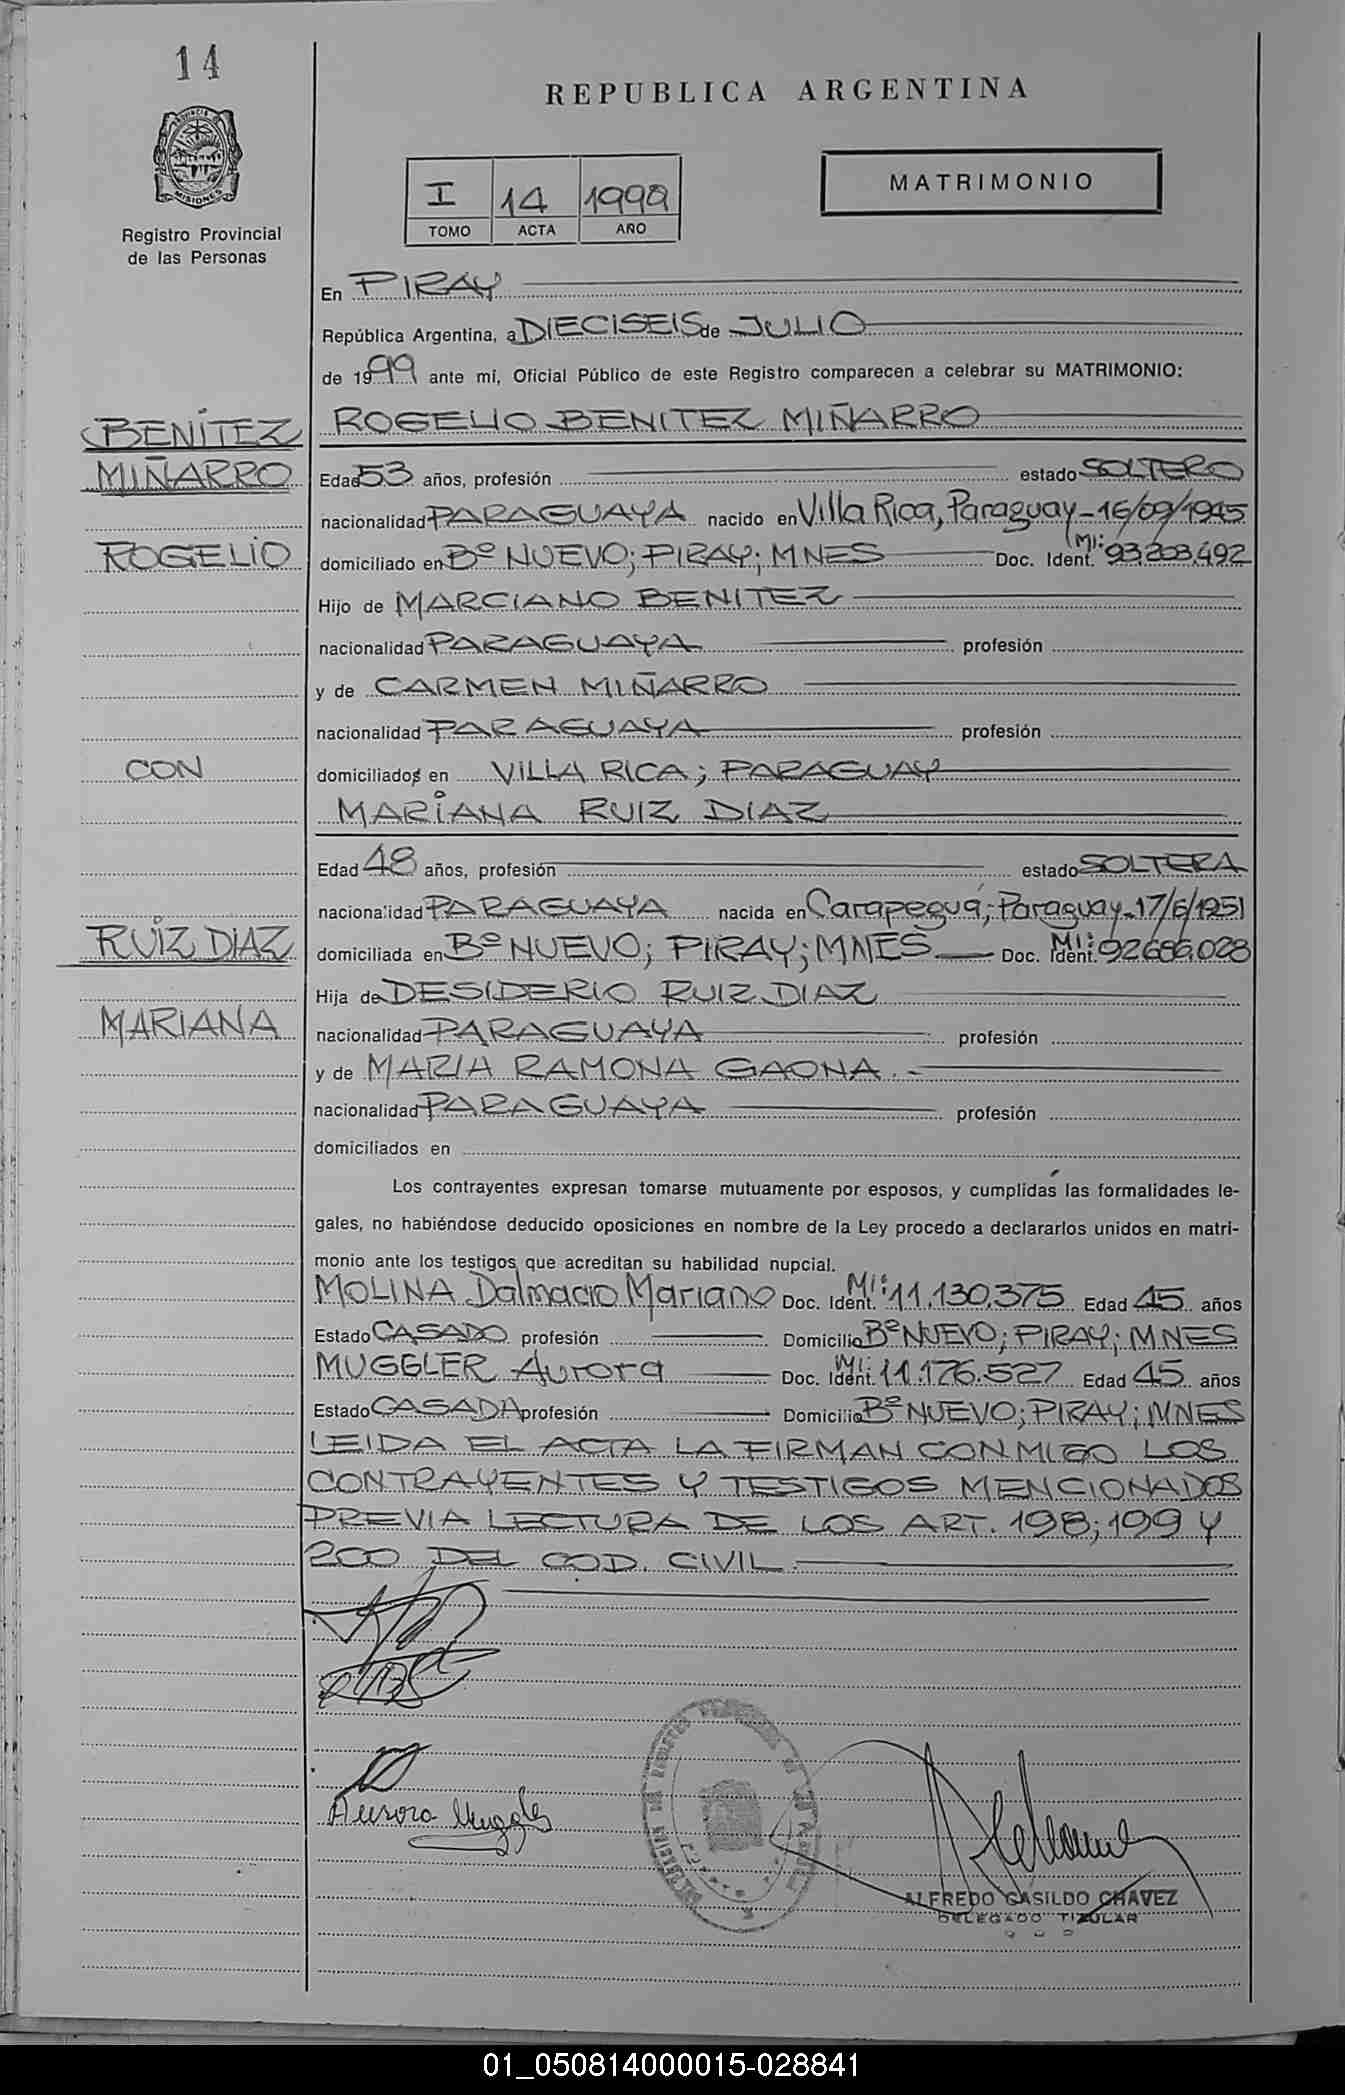 14
PROVINCIA DE
MISIONES
Registro Provincial
de las Personas
REPUBLICA ARGENTINA
I 14 1999
TOMO ACTA AÑO
MATRIMONIO
En PIRAY
República Argentina, a DIECISEIS de JULIO
de 1999 ante mí, Oficial Público de este Registro comparecen a celebrar su MATRIMONIO:
BENÍTEZ
ROGELIO BENITEZ MIÑARRO
MIÑARRO
Edad 53 años, profesión estado SOLTERO
nacionalidad PARAGUAYA nacido en Villa Rica, Paraguay-16/09/1945
ROGELIO
domiciliado en Bº NUEVO; PIRAY; MNES Doc. Ident. MI: 93.203.492
Hijo de MARCIANO BENITEZ
nacionalidad PARAGUAYA profesión
y de CARMEN MIÑARRO
nacionalidad PARAGUAYA profesión
CON
domiciliados en VILLA RICA; PARAGUAY
MARIANA RUIZ DIAZ
Edad 48 años, profesión estado SOLTERA
nacionalidad PARAGUAYA nacida en Carapeguá; Paraguay-17/6/1951
RUIZ DIAZ
domiciliada en Bº NUEVO; PIRAY; MNES Doc. Ident. MI: 92.686.028
Hija de DESIDERIO RUIZ DIAZ
MARIANA
nacionalidad PARAGUAYA profesión
y de MARIA RAMONA GAONA.-
nacionalidad PARAGUAYA profesión
domiciliados en
Los contrayentes expresan tomarse mutuamente por esposos, y cumplidas las formalidades le-
gales, no habiéndose deducido oposiciones en nombre de la Ley procedo a declararlos unidos en matri-
monio ante los testigos que acreditan su habilidad nupcial.
MOLINA Dalmacio Mariano Doc. Ident. MI: 11.130.375 Edad 45 años
Estado CASADO profesión Domicilio Bº NUEVO; PIRAY; MNES
MUGGLER Aurora Doc. Ident. MI: 11.176.527 Edad 45 años
Estado CASADA profesión Domicilio Bº NUEVO; PIRAY; MNES
LEIDA EL ACTA LA FIRMAN CONMIGO LOS
CONTRAYENTES Y TESTIGOS MENCIONADOS
PREVIA LECTURA DE LOS ART. 198; 199 Y
200 DEL COD. CIVIL.
Aurora Muggler
ALFREDO CASILDO CHAVEZ
DELEGADO TITULAR
01_050814000015-028841